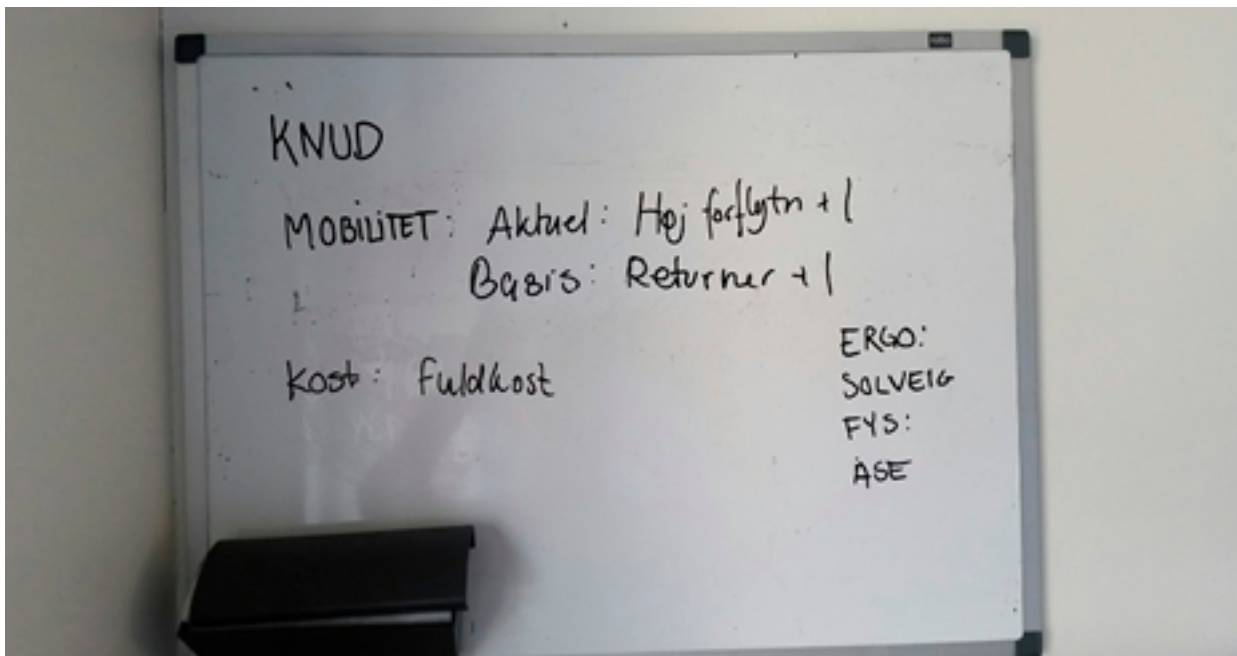 KNUD
MOBILITET: Aktuel: Høj forflytn + 1
Basis: Returner + 1
Kost: Fuldkost
ERGO:
SOLVEIG
FYS:
ÅSE